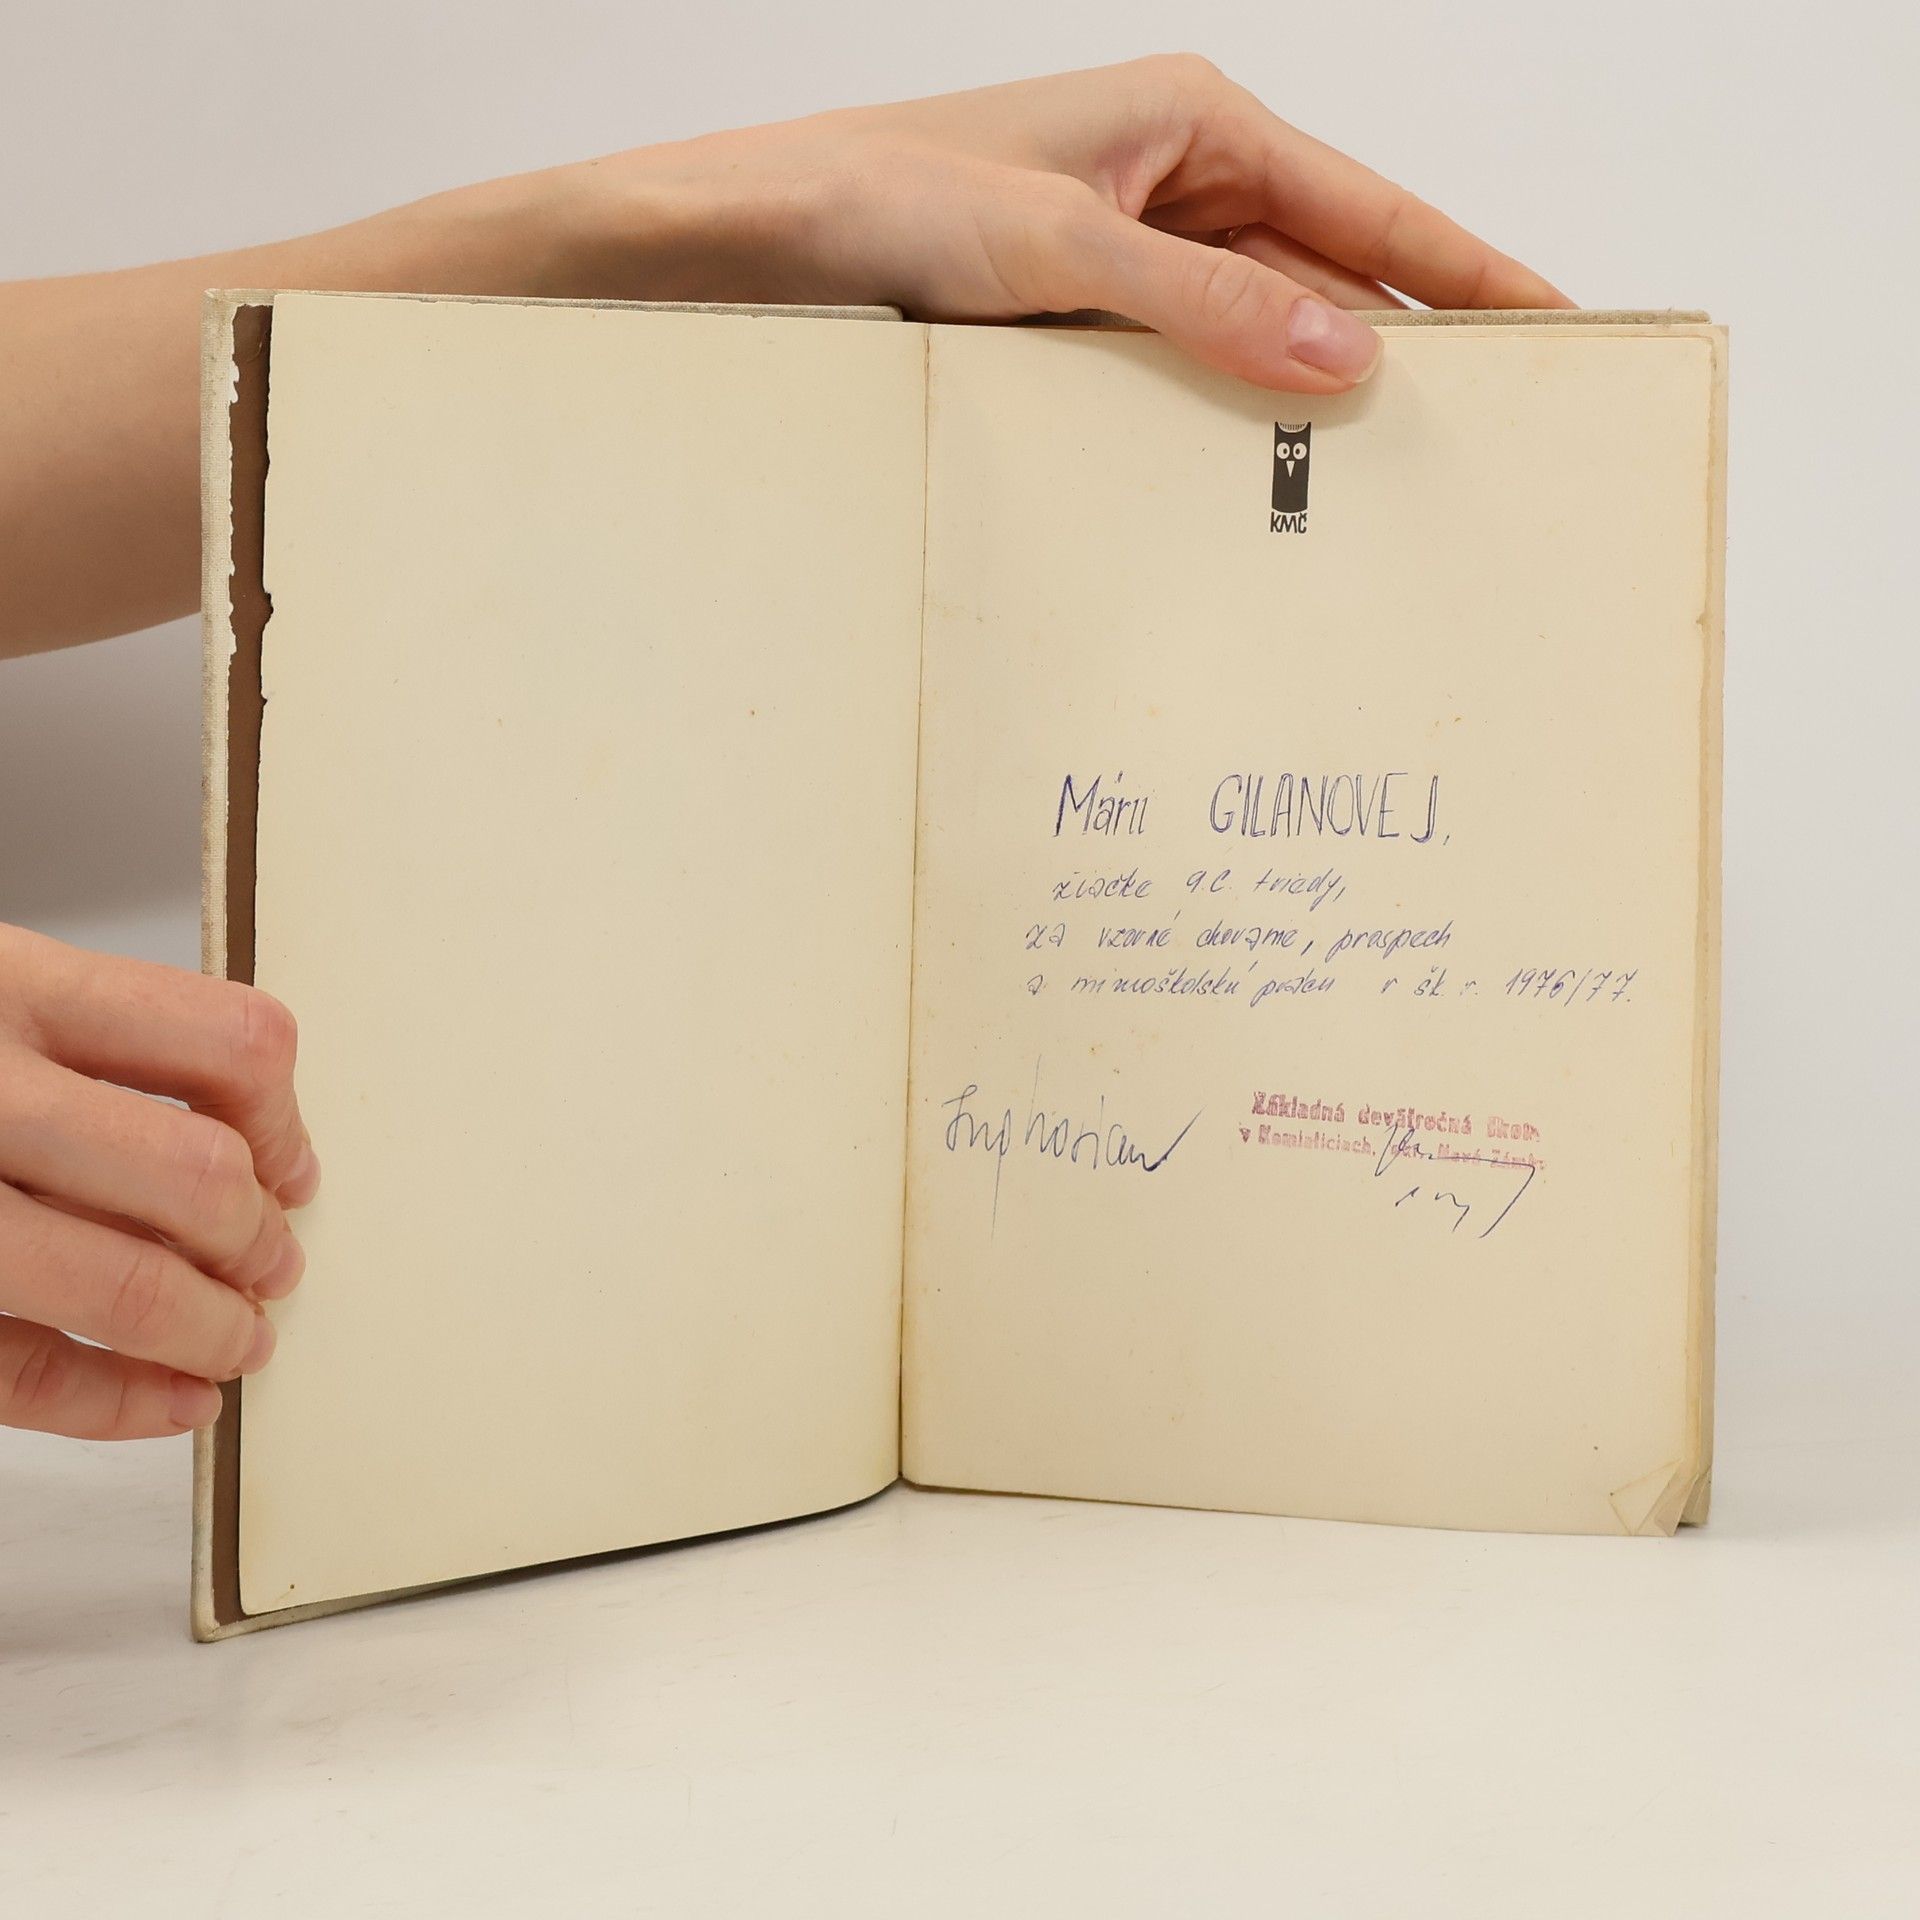 KMČ
Márii GILANOVEJ,
žiačke 9.C. triedy,
za vzorné chovanie, prospech
a mimoškolskú prácu v šk. r. 1976/77.
Základná deväťročná škola
v Komjaticiach, okr. Nové Zámky